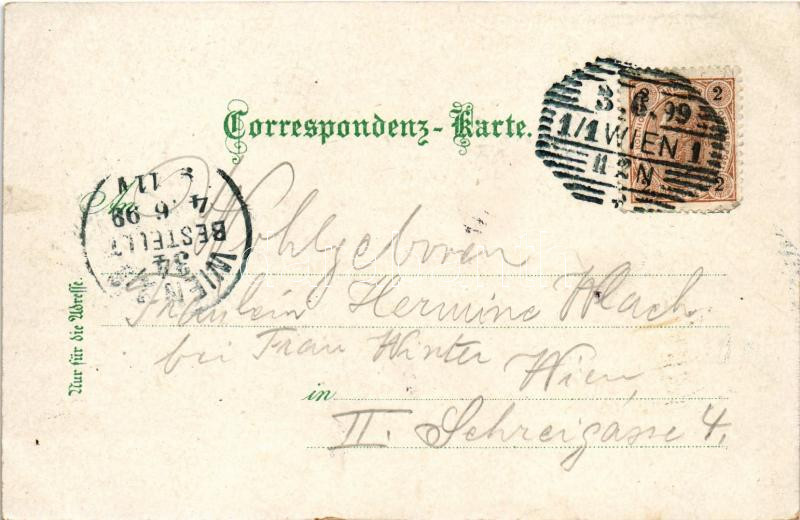 Correspondenz-Karte.
3. 6. 99
1/1 WIEN 1
2
2
An
Wohlgeboren
4 6 99
BESTELLT
WIEN
34
Fräulein Hermine Wlach
bei Frau Winter Wien,
in
II. Schreigasse 4.
Nur für die Adresse.